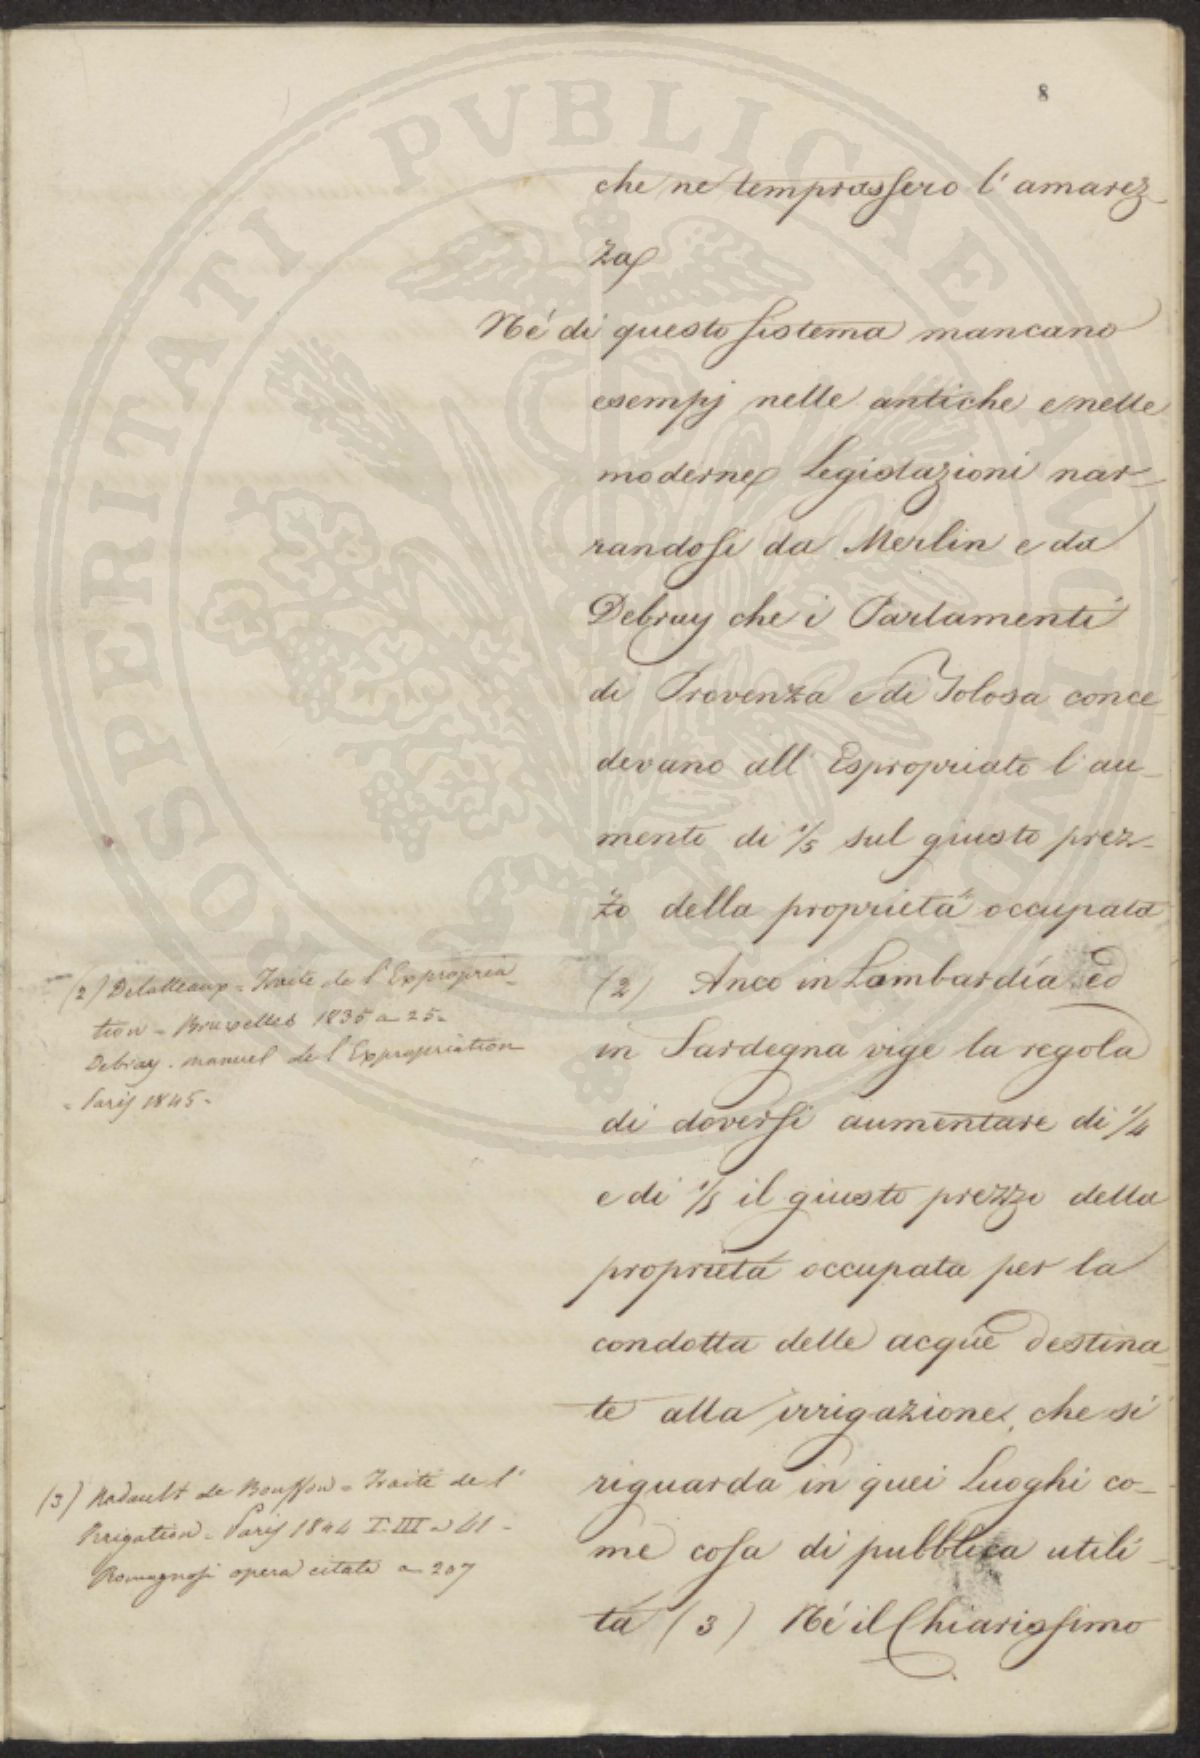 8
che ne temprassero l'amarez-
za
Né di questo sistema mancano
esempj nelle antiche e nelle
moderne Legislazioni nar-
randosi da Merlin e da
Debray che i Parlamenti
di Provenza e di Tolosa conce-
devano all'Espropriato l'au-
mento di 1/5 sul giusto prez-
zo della proprietà occupata
(2) Anco in Lombardia ed
in Sardegna vige la regola
di doversi aumentare di 1/4
e di 1/5 il giusto prezzo della
proprietà occupata per la
condotta delle acque destina-
te alla irrigazione, che si
riguarda in quei Luoghi co-
me cosa di pubblica utili-
tà (3) Né il Chiarissimo
(2) Delalleaux = Traite de l'Expropria-
tion = Bruxelles 1835 a 25 =
Debray. manuel de l'Expropriation
= Paris 1845 =
(3) Nadault de Bouffon = Traite de l'
Irrigation = Paris 1844 T. III a 41 =
Romagnosi opera citata a 207
PROSPERITATI PVBLICAE AVGENDAE